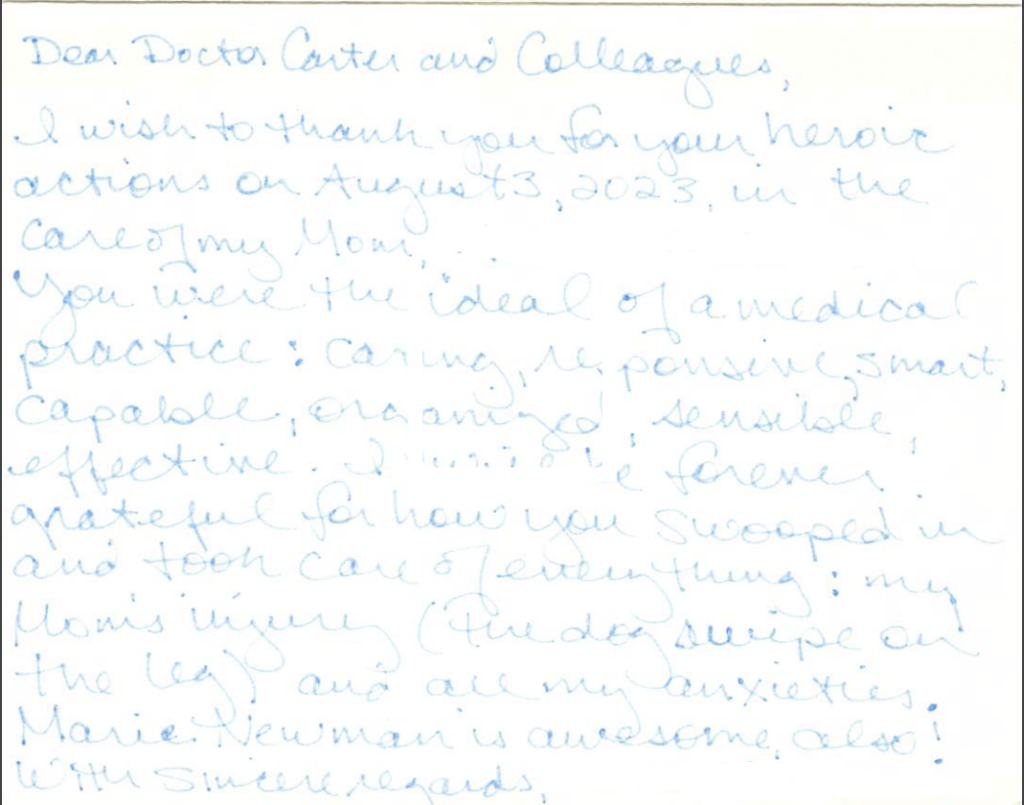 Dear Doctor Carter and Colleagues,
I wish to thank you for your heroic
actions on August 3, 2023, in the
care of my Mom.
You were the ideal of a medical
practice: caring, responsive, smart,
capable, organized, sensible,
effective. I forever
grateful for how you swooped in
and took care of everything: my
Mom's injury (the dog swipe on
the leg) and all my anxieties.
Marie Newman is awesome, also!
With sincere regards,